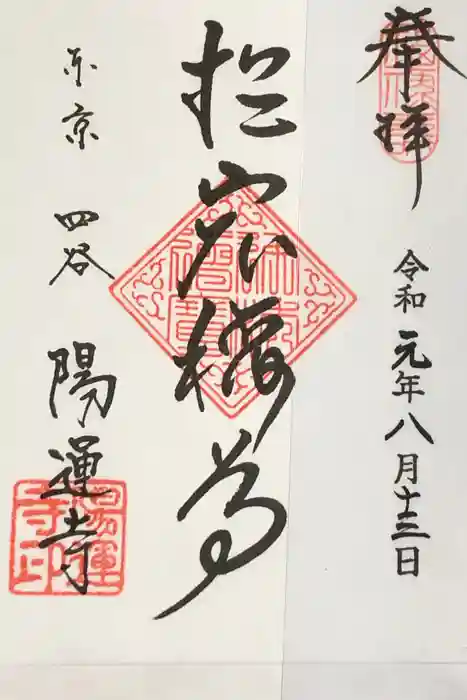 奉拝
令和元年八月十三日
於岩稲荷
東京 四谷 陽運寺
陽運寺印